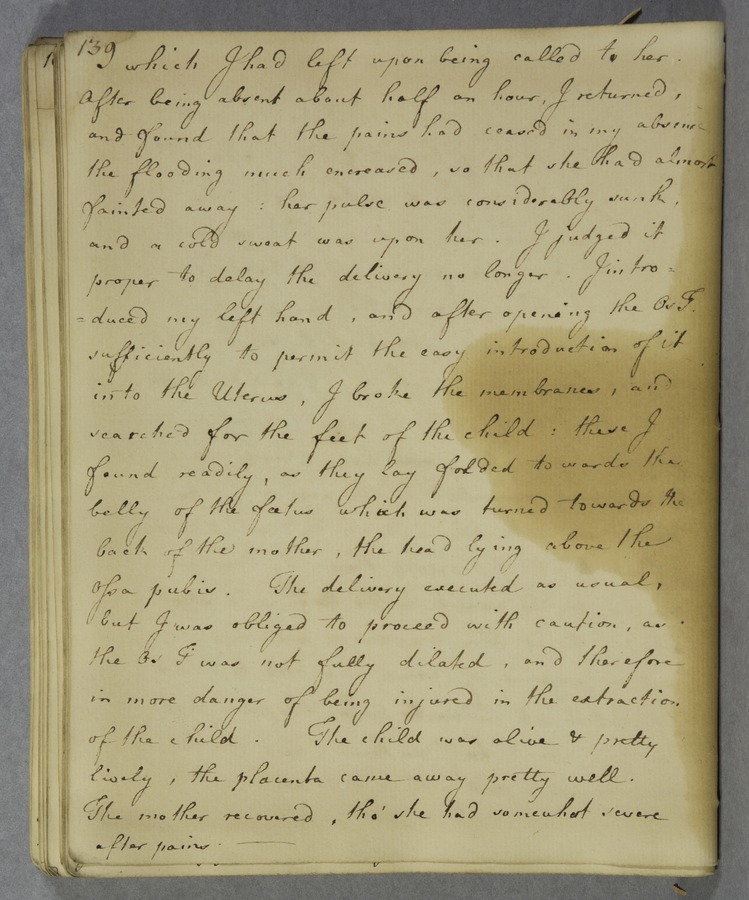 139
which I had left upon being called to her.
After being absent about half an hour, I returned,
and found that the pains had ceased in my absen=
the flooding much encreased, so that she had almost
fainted away : her pulse was considerably sunk,
and a cold sweat was upon her. I judged it
proper to delay the delivery no longer. I intro=
=duced my left hand, and after opening the Os T.
sufficiently to permit the easy introduction of it
into the Uterus, I broke the membranes, and
searched for the feet of the child : these I
found readily, as they lay folded towards the
belly of the fœtus which was turned towards the
back of the mother, the head lying above the
Ossa pubis. The delivery executed as usual,
but I was obliged to proceed with caution, as
the Os T was not fully dilated, and therefore
in more danger of being injured in the extraction
of the child. The child was alive & pretty
lively, the placenta came away pretty well.
The mother recovered, tho' she had somewhat severe
after pains. —